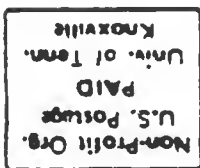 Non-Profit Org.
U.S. Postage
PAID
Univ. of Tenn.
Knoxville